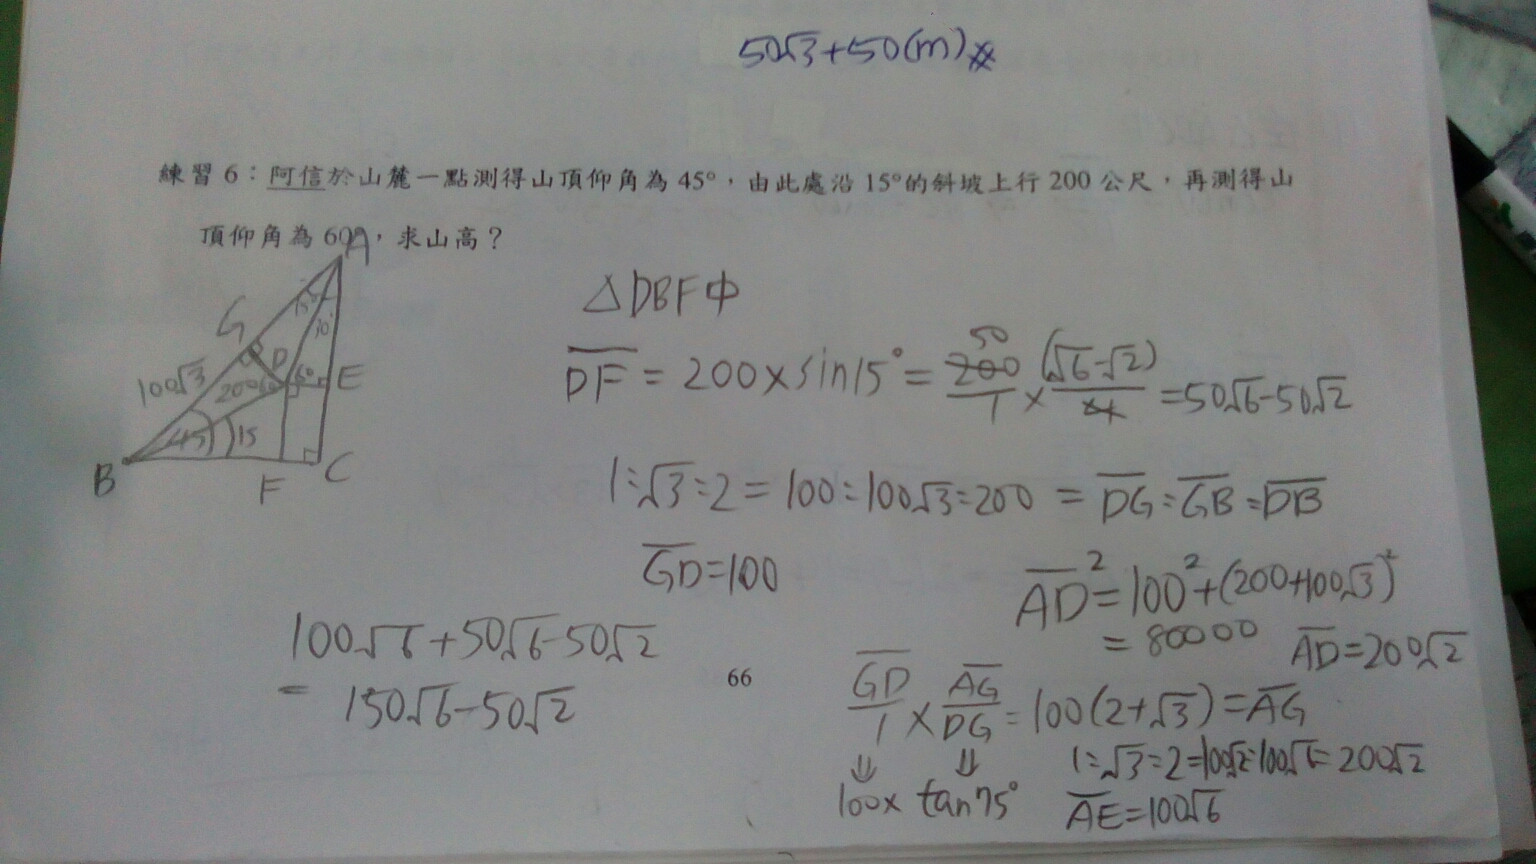 50√3+50(m)※
練習 6：阿信於山麓一點測得山頂仰角為 45°，由此處沿 15°的斜坡上行 200 公尺，再測得山
頂仰角為 60°，求山高？
A
G
15°
30°
D
100√3
200
60
60
E
45
15
B
F
C
△DBF中
DF = 200×sin15° = 200/1 × (√6-√2)/4 = 50√6-50√2
50
1:√3:2 = 100:100√3:200 = DG:GB:DB
GD=100
AD²=100²+(200+100√3)²
= 80000 AD=200√2
100√6+50√6-50√2
= 150√6-50√2
66
GD/1 × AG/DG = 100(2+√3)=AG
⇓ ⇓
100× tan75°
1:√3:2=100√2:100√6:200√2
AE=100√6